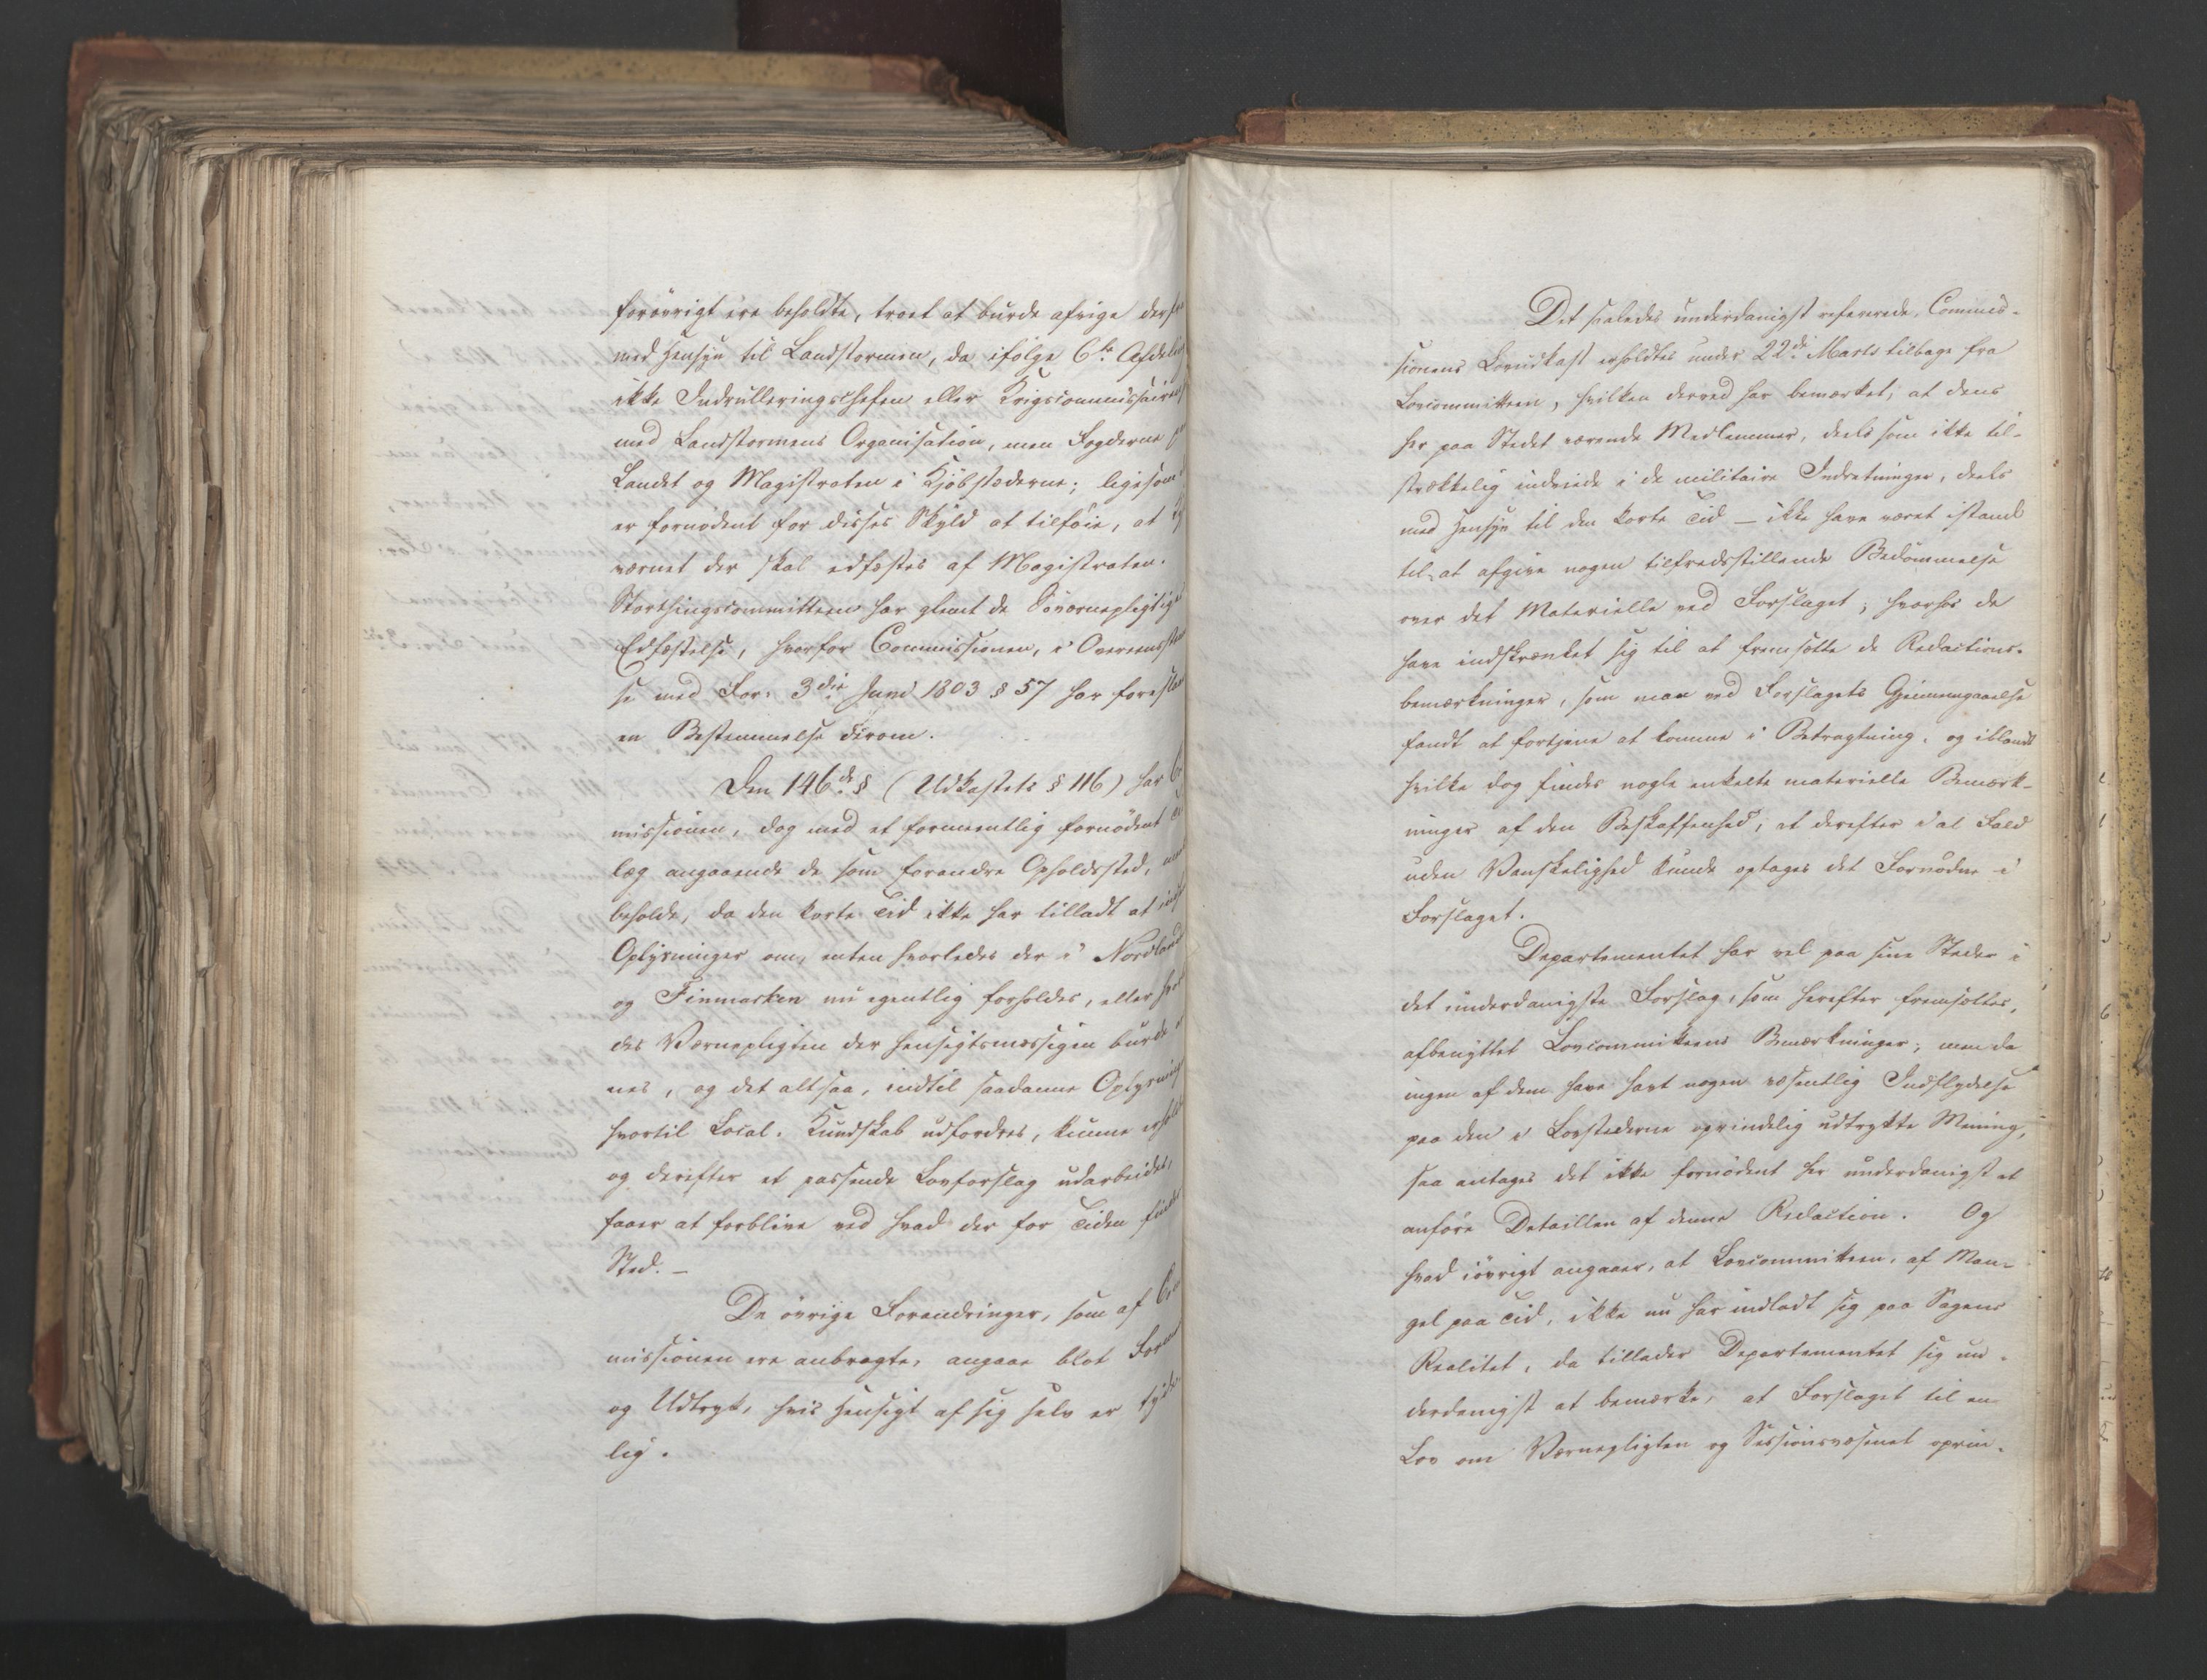 forøvrigt ere beholdte, troet at burde afvige
med Hensyn til Landstormen, da ifølge 6te
ikke Indrulleringschefen eller
med Landstormens Organisation, men Fogderne
Landet og Magistraten i Kjøbstæderne; ligesom
er fornødent for disses Skyld at tilføie, at
værnet der skal edfæstes af Magistraten.
Storthingscommitteen har glemt de
Edfæstelse, hvorfor Commissionen, i
se med For: 3die Juni 1803 § 57 har
en Bestemmelse derom.
Den 146de § (Udkastets § 116) har
missionen, dog med et formeentlig fornødent
læg angaaende de som forandre Opholdssted,
beholdt, da den korte Tid ikke har tilladt at
Oplysninger om, enten hvorledes der i
og Finmarken nu egentlig forholdes, eller
des Værnepligten der hensigtsmæssigen burde
nes, og det altsaa, indtil saadanne
hvortil Local-Kundskab udfordres, kunne
og derefter et passende Lovforslag udarbeides,
faaer at forblive ved hvad der for Tiden
Sted. –
De øvrige Forandringer, som af
missionen ere anbragte, angaae blot
og Udtryk, hvis Hensigt af sig selv er
lig.
Det saaledes underdanigst refererede, Commis-
sionens Lovudkast erholdtes under 22de Marts tilbage fra
Lovcommitteen, hvilken derved har bemærket, at dens
her paa Stedet værende Medlemmer, deels som ikke til-
strækkelig indviede i de militaire Indretninger, deels
med Hensyn til den korte Tid – ikke have været istand
til at afgive nogen tilfredsstillende Bedømmelse
over det Materielle ved Forslaget; hvorhos de
have indskrænket sig til at fremsætte de Redactions-
bemærkninger, som man ved Forslagets Gjennemgaaelse
fandt at fortjene at komme i Betragtning, og iblandt
hvilke dog findes nogle enkelte materielle Bemærk-
ninger af den Beskaffenhed, at derefter i al Fald
uden Vanskelighed kunde optages det Fornødne i
Forslaget.
Departementet har vel paa sine Steder i
det underdanigste Forslag, som herefter fremsættes,
afbenyttet Lovcommitteens Bemærkninger; men da
ingen af dem have havt nogen væsentlig Indflydelse
paa den i Lovstederne oprindelig udtrykte Mening,
saa antages det ikke fornødent her underdanigst at
anføre Detaillen af denne Redaction. Og
hvad iøvrigt angaaer, at Lovcommitteen, af Man-
gel paa Tid, ikke nu har indladt sig paa Sagens
Realitet, da tillader Departementet sig un-
derdanigst at bemærke, at Forslaget til en
Lov om Værnepligten og Sessionsvæsenet oprin-